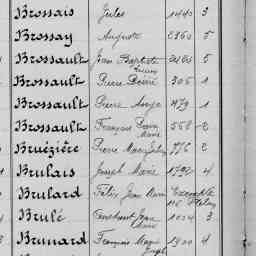 Brossais Jules 1440 3
Brossay Auguste 2360 5
Brossault Jean Baptiste 2484 5
Brossault Pierre Désiré 306 1
Brossault Pierre Ange 479 1
Brossault François Pierre Marie 558 2
Bruézière Pierre Marie Julien 776 2
Brulais Joseph Marie 1792 4
Brulard Félix Jean Marie Exempté
Brulé Constant Jean Marie 1034 3
Brunard François Marie Joseph 1900 4